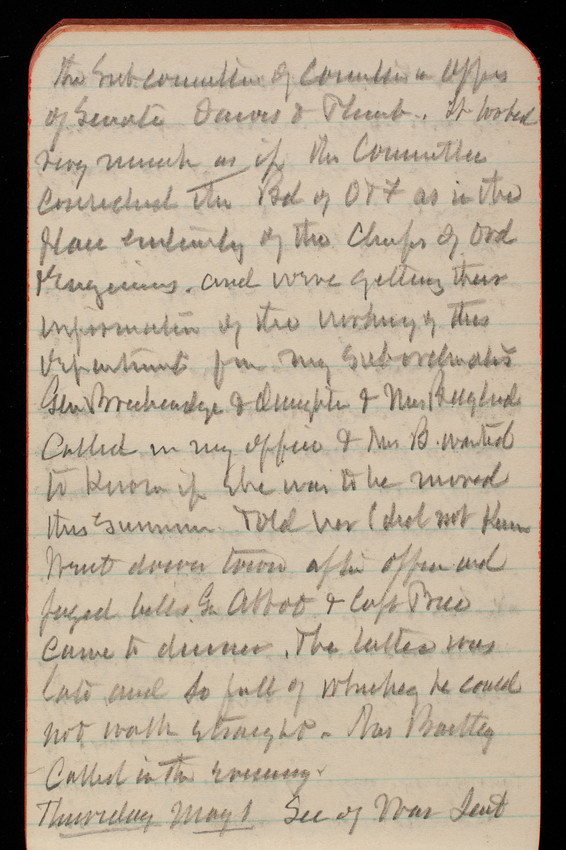 the Subcommittee of Committee on
of Senate Dawes & Plumb. It looked
very much as if the Committee
considered the Bd of O & F as in the
place entirely of the Chiefs of Ord
& Engineers. and were getting their
information of the working of this
Department from my subordinates
Gen Breckenridge & & Mrs
Called in my office & Mrs B. wanted
to know if she was to be moved
this summer Told her I did not know
Went down town after office and
payed bills. Gn Abbot & Capt
Came to dinner. The latter was
late and so full of whiskey he could
not walk straight. Mrs Bartley
Called in the evening.
Thursday May 1 Sec of War sent